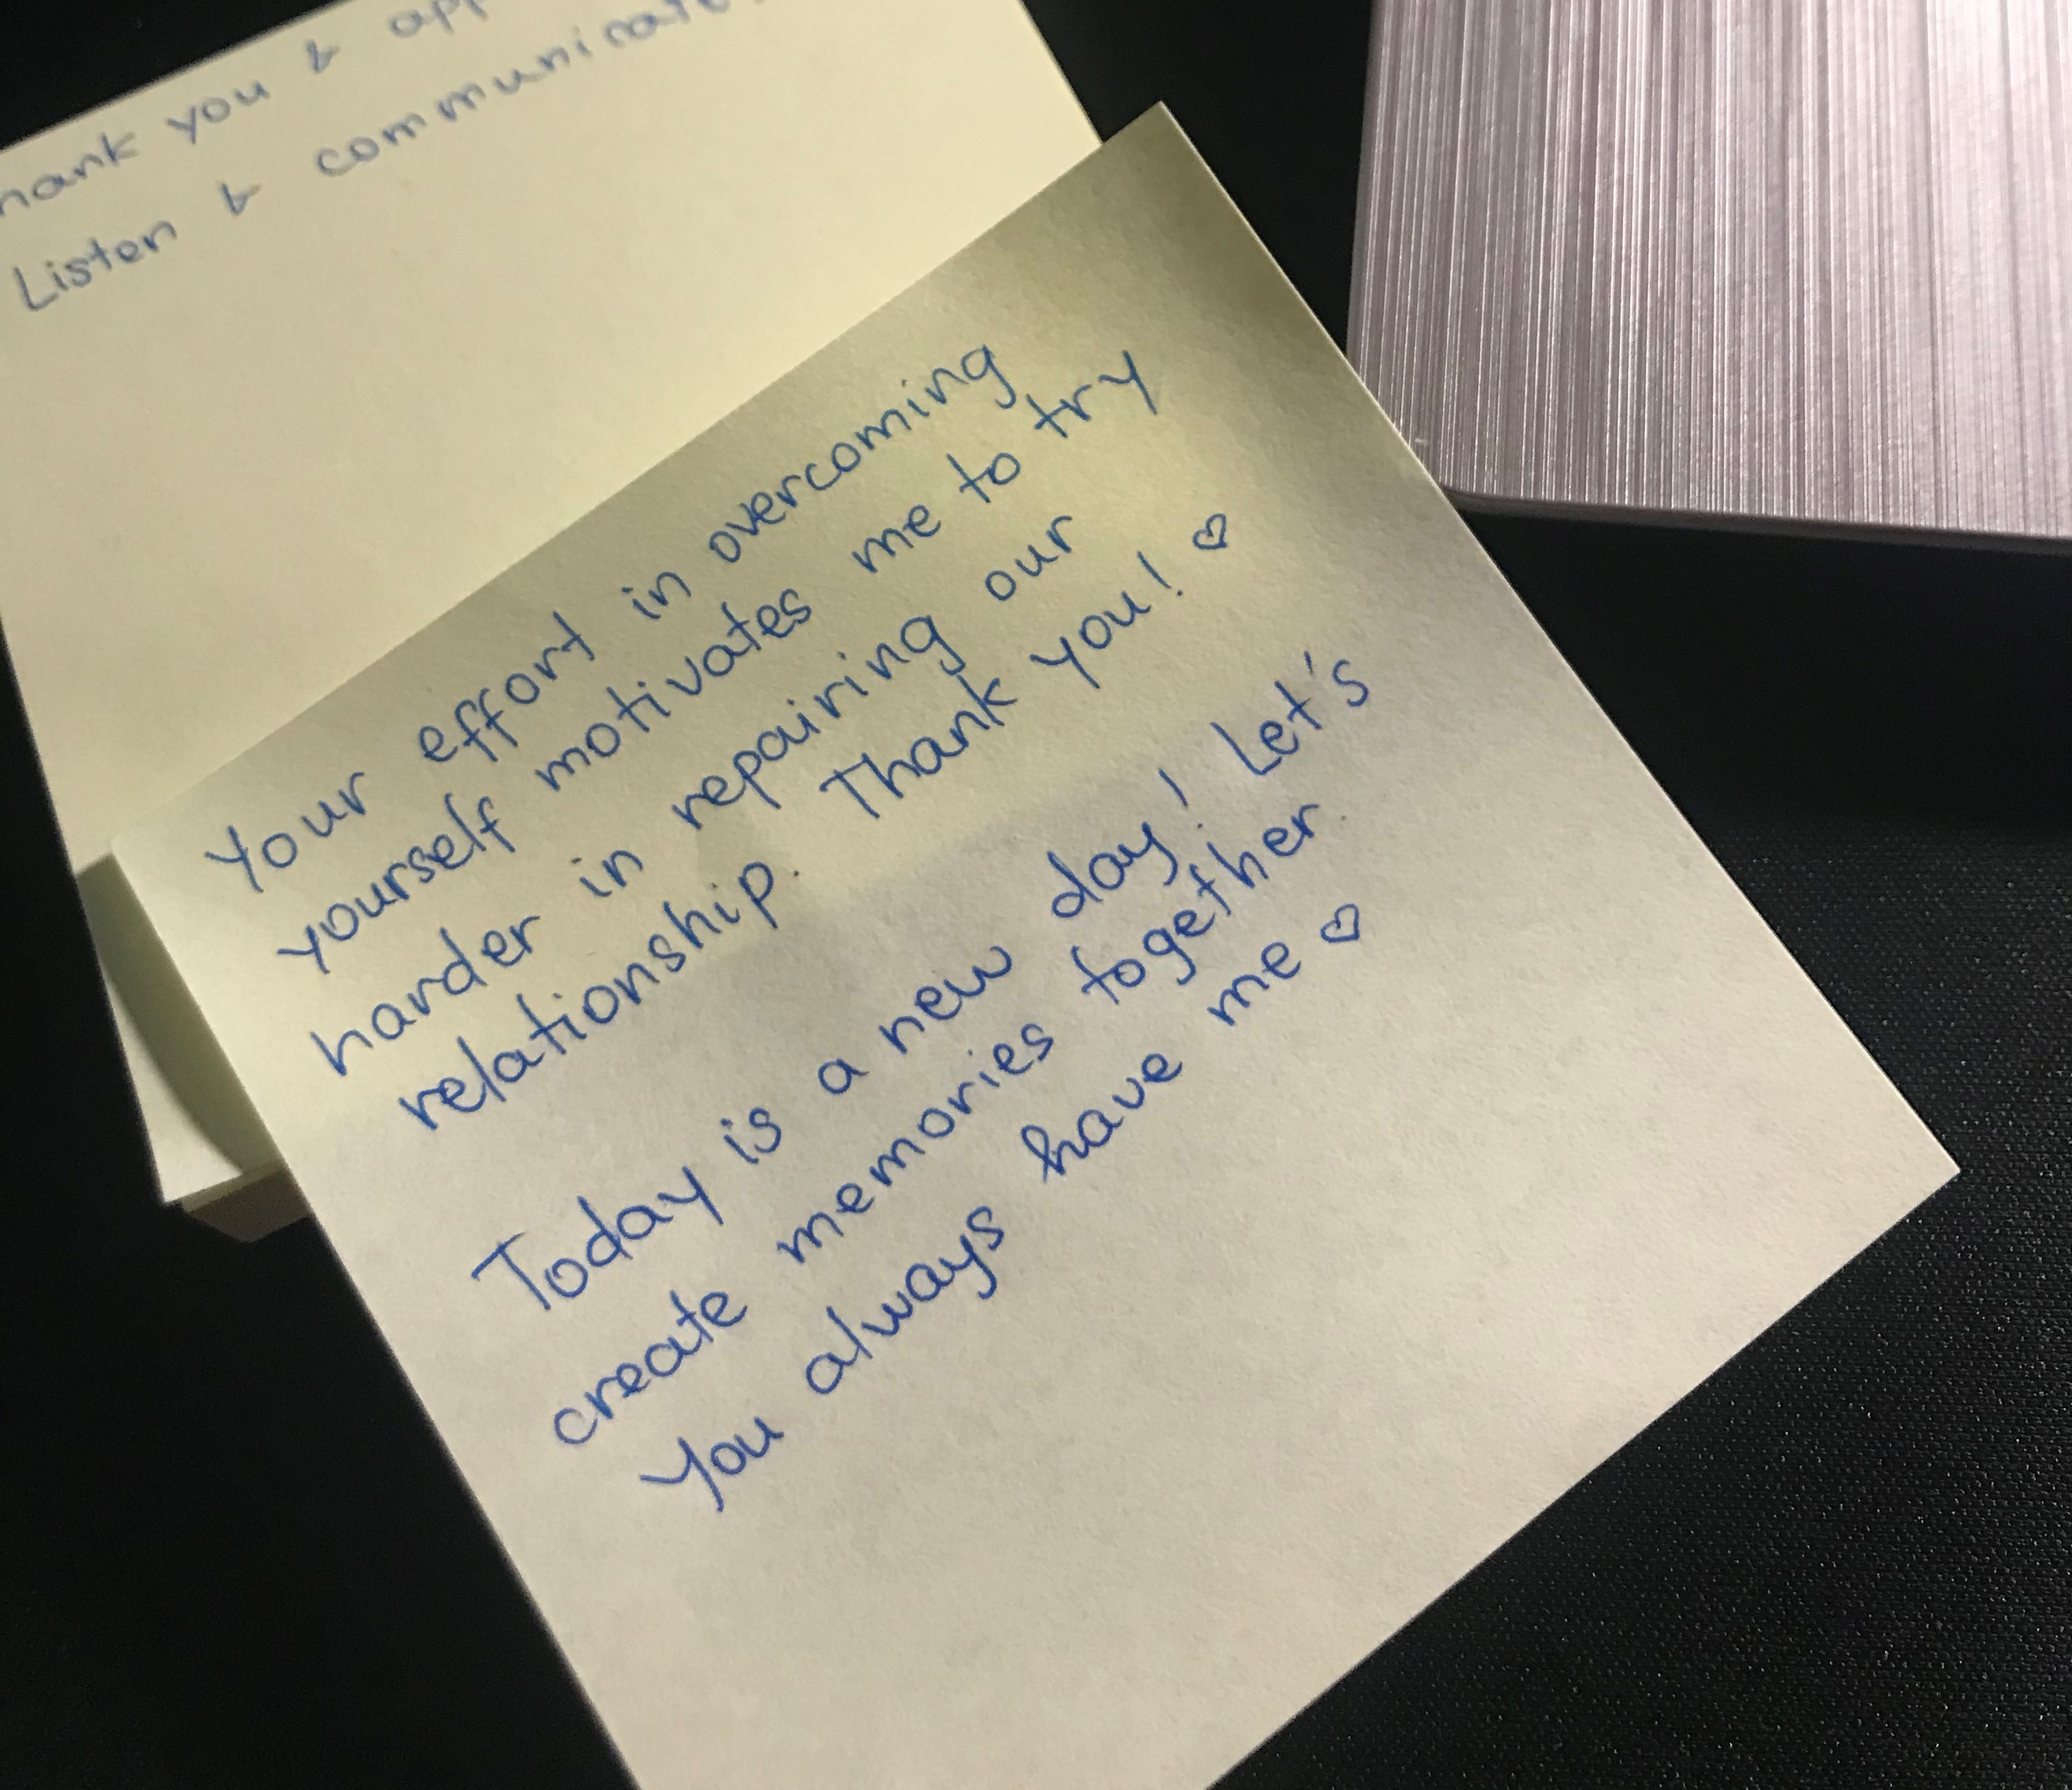 you &
Listen & communicate
Your effort in overcoming
yourself motivates me to try
harder in repairing our
relationship. Thank you! ♡
Today is a new day! Let's
create memories together.
You always have me ♡